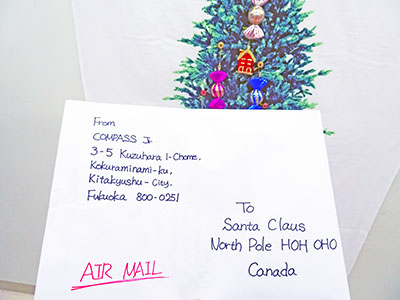 From
COMPASS Jr.
3-5 Kuzuhara 1-Chome,
Kokuraminami-ku,
Kitakyushu-City,
Fukuoka 800-0251
To
Santa Claus
North Pole HOH OHO
Canada
AIR MAIL